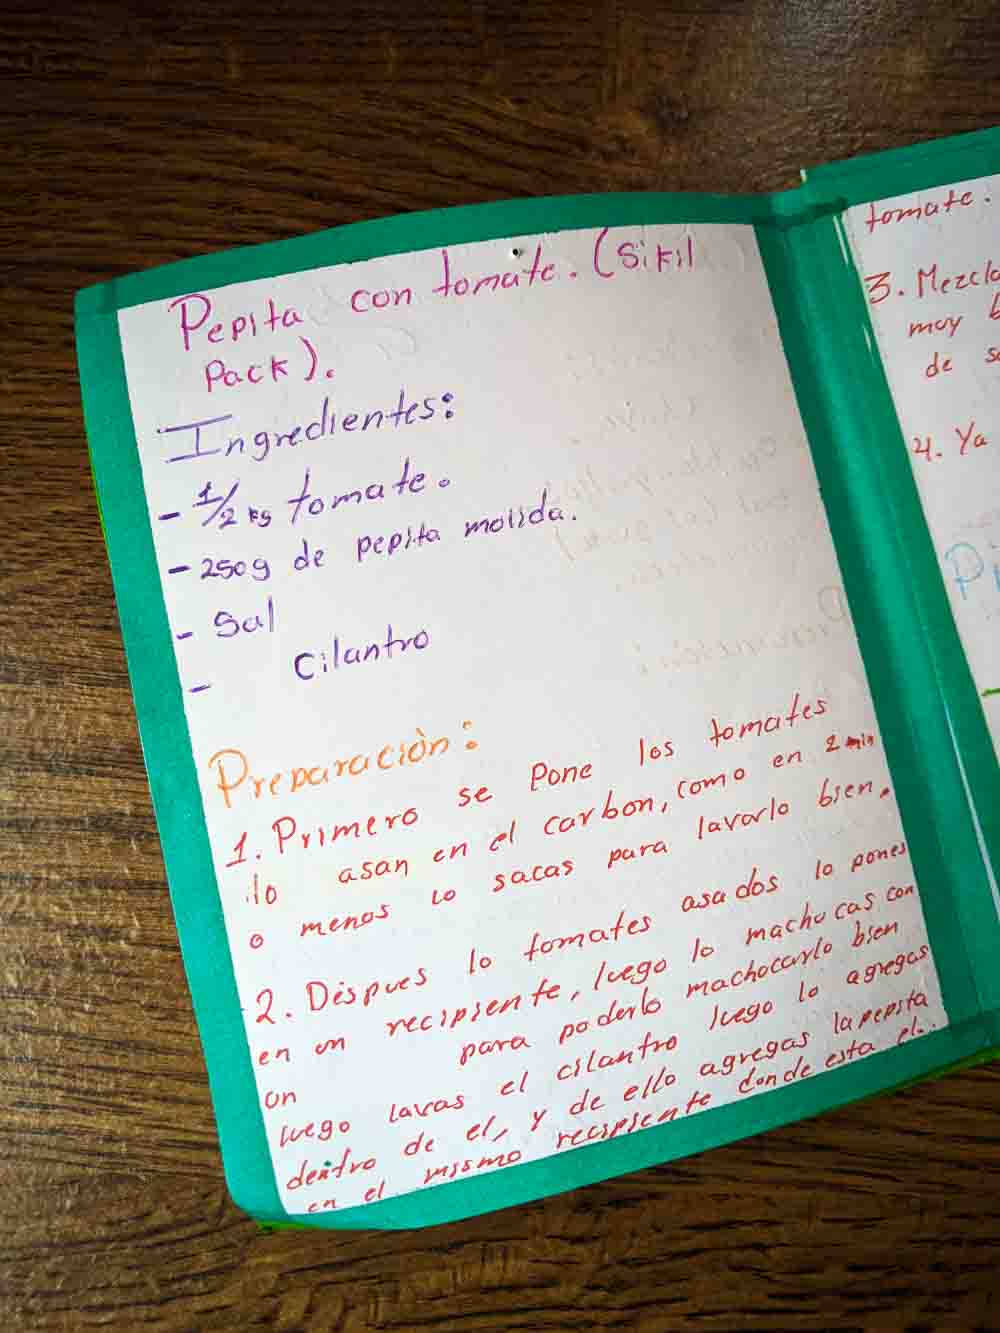 Pepita con tomate. (Sikil
Pack).
Ingredientes:
- 1/2 kg tomate.
- 250g de pepita molida.
- Sal
- Cilantro
Preparación:
1. Primero se Pone los tomates
lo asan en el carbon, como en 2 min
o menos lo sacas para lavarlo bien.
2. Dispues lo tomates asados lo pones
en un recipiente, luego lo machucas con
un para poderlo machocarlo bien
luego lavas el cilantro luego lo agregas
dentro de el, y de ello agregas la pepita
en el mismo recipiente donde esta el..
tomate.
3. Mezcla
muy b
de s
4. Ya
Pi